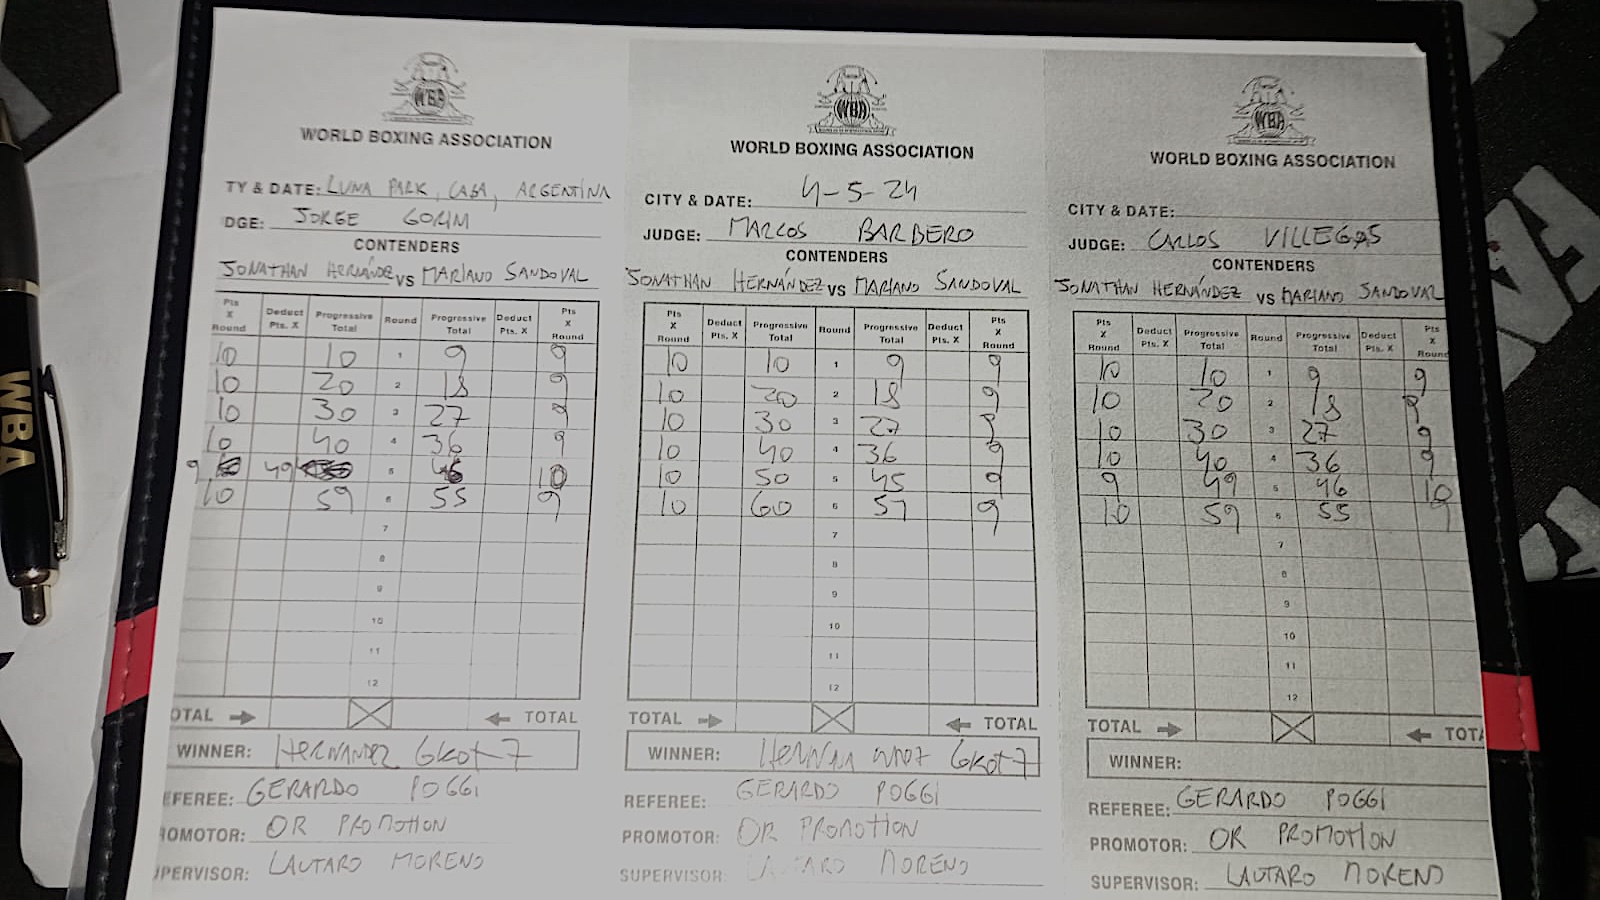 WBA
WORLD BOXING ASSOCIATION
TY & DATE: LUNA PARK, CABA, ARGENTINA
DGE: JORGE GORINI
CONTENDERS
JONATHAN HERNÁNDEZ VS MARIANO SANDOVAL
Pts X Round Deduct Pts. X Progressive Total Round Progressive Total Deduct Pts. X Pts X Round
10 10 1 9 9
10 20 2 18 9
10 30 3 27 9
10 40 4 36 9
9 49 5 46 10
10 59 6 55 9
7
8
9
10
11
12
OTAL TOTAL
WINNER: HERNANDEZ GKOT7
EFEREE: GERARDO POGGI
ROMOTOR: OR PROMOTION
UPERVISOR: LAUTARO MORENO
WBA
WORLD BOXING ASSOCIATION
CITY & DATE: 4-5-24
JUDGE: MARCOS BARBERO
CONTENDERS
JONATHAN HERNÁNDEZ VS MARIANO SANDOVAL
Pts X Round Deduct Pts. X Progressive Total Round Progressive Total Deduct Pts. X Pts X Round
10 10 1 9 9
10 20 2 18 9
10 30 3 27 9
10 40 4 36 9
10 50 5 45 9
10 60 6 54 9
7
8
9
10
11
12
TOTAL TOTAL
WINNER: GKOT7
REFEREE: GERARDO POGGI
PROMOTOR: OR PROMOTION
SUPERVISOR: LAUTARO MORENO
WBA
WORLD BOXING ASSOCIATION
CITY & DATE:
JUDGE: CARLOS VILLEGAS
CONTENDERS
JONATHAN HERNÁNDEZ VS MARIANO SANDOVAL
Pts X Round Deduct Pts. X Progressive Total Round Progressive Total Deduct Pts. X Pts X Round
10 10 1 9 9
10 20 2 18 9
10 30 3 27 9
10 40 4 36 9
9 49 5 46 10
10 59 6 55 9
7
8
9
10
11
12
TOTAL TOTA
WINNER:
REFEREE: GERARDO POGGI
PROMOTOR: OR PROMOTION
SUPERVISOR: LAUTARO MORENO
WBA